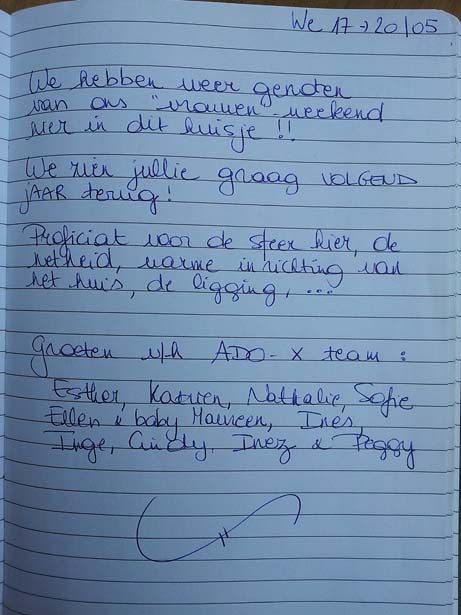 We 17 → 20/05
We hebben weer genoten
van ons "vrouwen"-weekend
hier in dit huisje !!
We zien jullie graag VOLGEND
JAAR terug!
Proficiat voor de sfeer hier, de
netheid, warme inrichting van
het huis, de ligging, ...
Groeten v/h ADO-X team :
Esther, Katrien, Nathalie, Sofie
Ellen & baby Maureen, Ines,
Inge, Cindy, Inez & Peggy